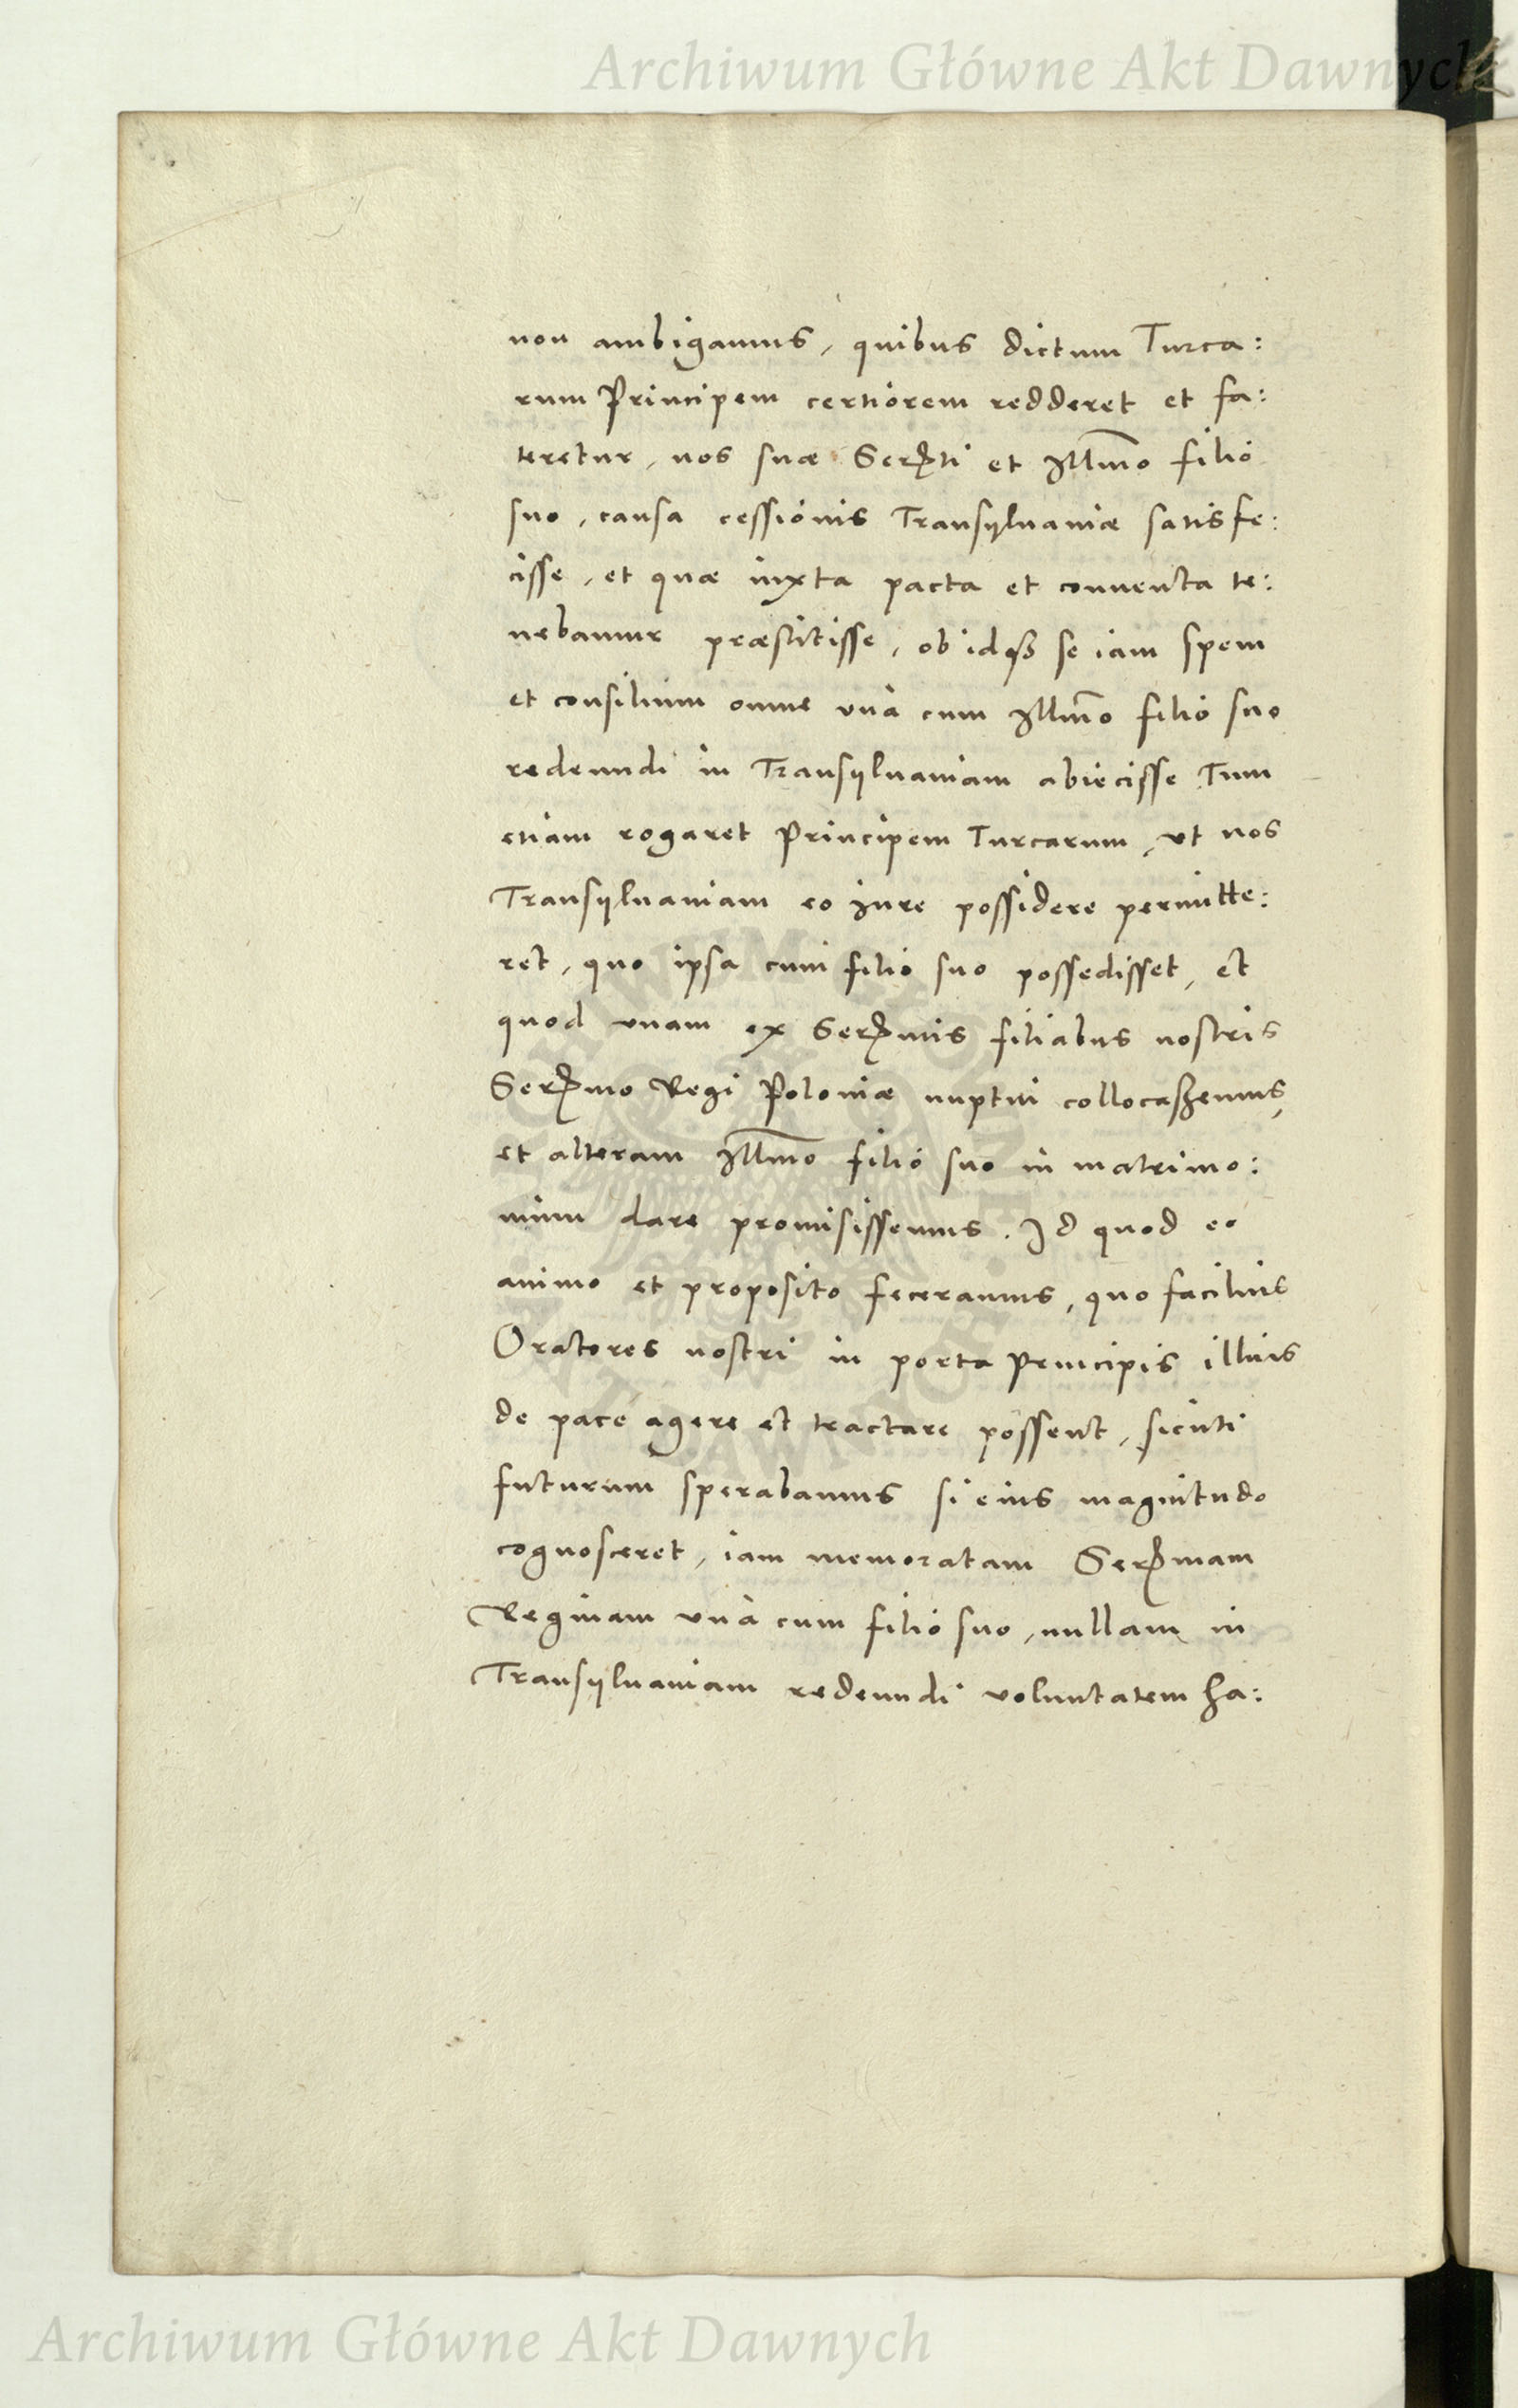 Archiwum Główne Akt Dawnych
non ambigamus, quibus dictum Turca:
rum Principem certiorem redderet et fa:
teretur, nos suæ Serti et Illmo filio
suo, causa cessionis Transylvaniæ satisfe:
cisse, et quæ iuxta pacta et conventa te:
nebamur præstitisse, ob idqȝ se iam spem
et consilium omne unà cum Illmo filio suo
redeundi in Transylvaniam abiecisse Tum
etiam rogaret Principem Turcarum, ut nos
Transylvaniam eo iure possidere permitte:
ret, quo ipsa cum filio suo possedisset, et
quod unam ex Sermis filiabus nostris
Sermo Regi Poloniæ nuptui collocassemus,
et alteram Illmo filio suo in matrimo:
nium dare promisissemus. Id quod eo
animo et proposito feceramus, quo facilius
Oratores nostri in porta Principis illius
de pace agere et tractare possent, sicuti
futurum sperabamus si eius magnitudo
cognosceret, iam memoratam Sermam
Reginam unà cum filio suo, nullam in
Transylvaniam redeundi voluntatem ha:
Archiwum Główne Akt Dawnych